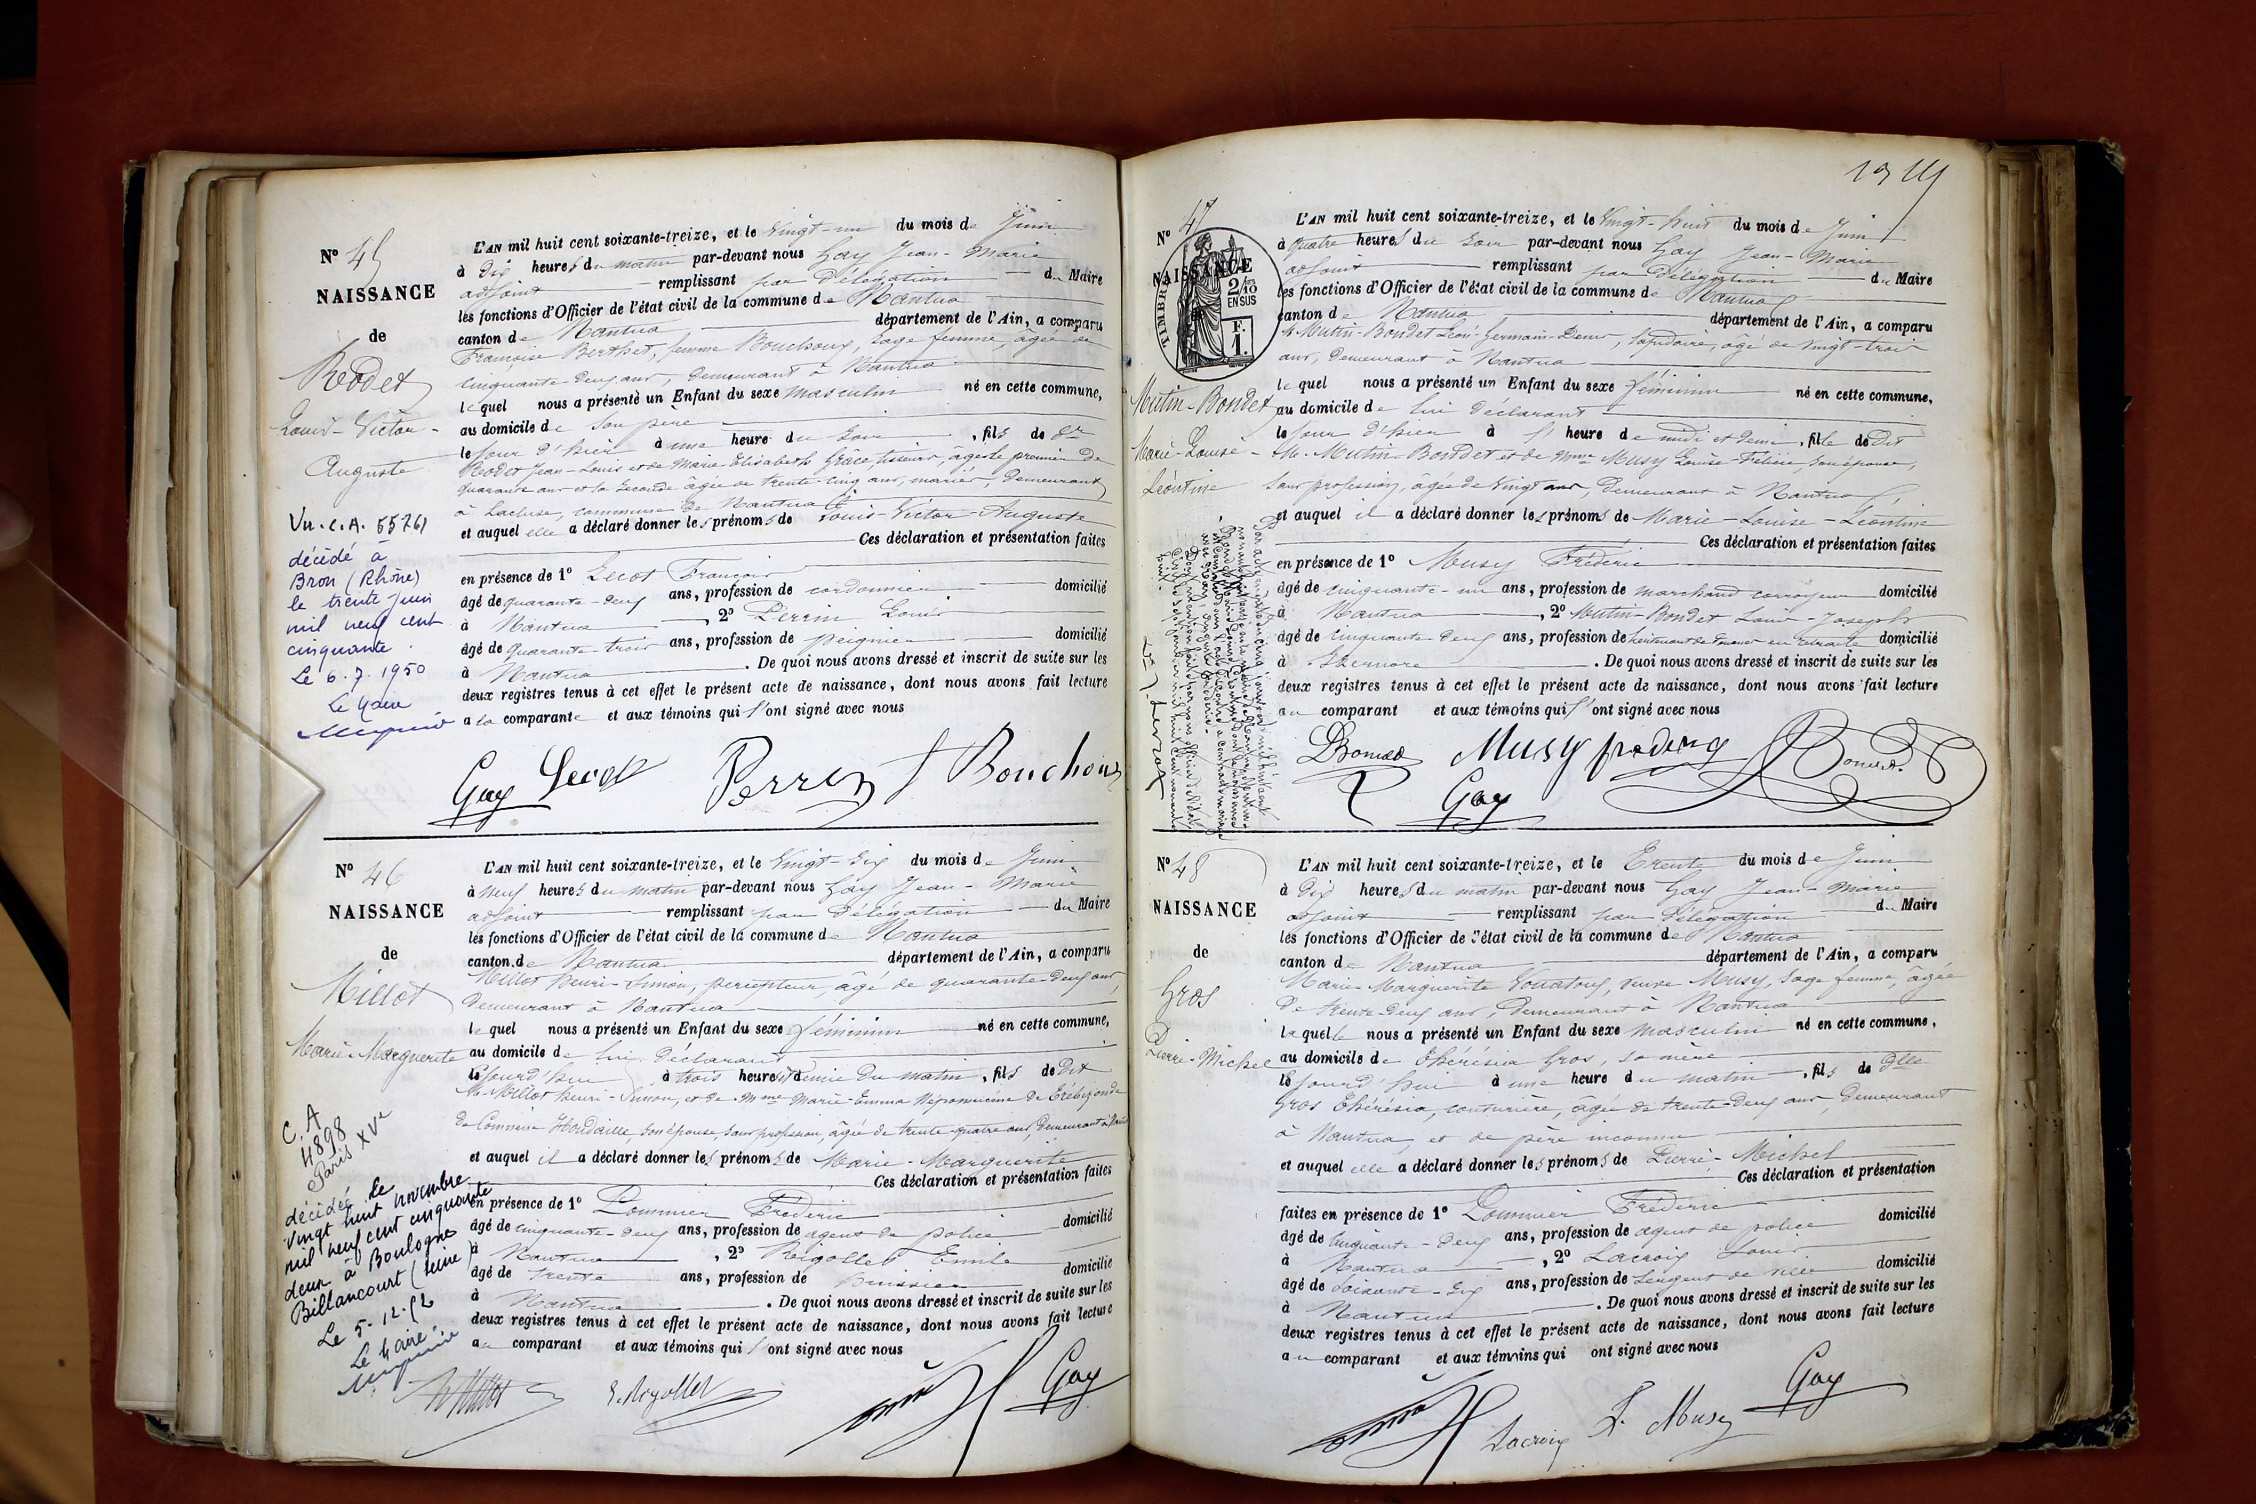 N° 45
NAISSANCE
de
Rodet
Louis-Victor-
Auguste
Vu. C.A. 55761
décédé à
Bron (Rhône)
le trente juin
mil neuf cent
cinquante.
Le 6.7.1950
Le Maire
L'AN mil huit cent soixante-treize, et le vingt-un du mois de Juin
à dix heures du matin par-devant nous Gay Jean-Marie
adjoint remplissant par Délégation du Maire
les fonctions d'Officier de l'état civil de la commune de Nantua
canton de Nantua département de l'Ain, a comparu
Françoise Berthet, femme Bouchoux, sage femme, âgée de
cinquante-deux ans, demeurant à Nantua
lequel nous a présenté un Enfant du sexe masculin né en cette commune,
au domicile de son père
le jour d'hier à une heure du soir, fils de Sr
Rodet Jean-Louis et de Marie-Elisabeth Grâce, tisseurs, âgés le premier de
quarante ans et la seconde âgée de trente-cinq ans, mariés, demeurant
à Lacluse, commune de Nantua
et auquel elle a déclaré donner les prénoms de Louis-Victor-Auguste
Ces déclaration et présentation faites
en présence de 1° Lecot François
âgé de quarante-deux ans, profession de cordonnier domicilié
à Nantua, 2° Perrin Louis
âgé de quarante-trois ans, profession de peignier domicilié
à Nantua. De quoi nous avons dressé et inscrit de suite sur les
deux registres tenus à cet effet le présent acte de naissance, dont nous avons fait lecture
a la comparante et aux témoins qui l'ont signé avec nous
Gay Lecot Perrin f Bouchoux
N° 46
NAISSANCE
de
Millot
Marie-Marguerite
C.A
4898
Paris XVe
décédée le
vingt huit novembre
mil neuf cent cinquante
deux à Boulogne
Billancourt (Seine)
Le 5-12-52
Le Maire
L'AN mil huit cent soixante-treize, et le vingt-six du mois de Juin
à neuf heures du matin par-devant nous Gay Jean-Marie
adjoint remplissant par Délégation du Maire
les fonctions d'Officier de l'état civil de la commune de Nantua
canton de Nantua département de l'Ain, a comparu
Millot Henri-Simon, percepteur, âgé de quarante-deux ans,
demeurant à Nantua
lequel nous a présenté un Enfant du sexe féminin né en cette commune,
au domicile de lui déclarant
le jourd'hui à trois heures et demie du matin, fils de Dit
M. Millot Henri-Simon, et de Mme Marie-Emma Népomucène de Trébizonde
de Comnène Houdaille, son épouse, sans profession, âgée de trente-quatre ans, demeurant à Nantua
et auquel il a déclaré donner les prénoms de Marie-Marguerite
Ces déclaration et présentation faites
en présence de 1° Pommier Frédéric
âgé de cinquante-deux ans, profession de agent de police domicilié
à Nantua, 2° Rigollet Emile
âgé de trente ans, profession de huissier domicilié
à Nantua. De quoi nous avons dressé et inscrit de suite sur les
deux registres tenus à cet effet le présent acte de naissance, dont nous avons fait lecture
au comparant et aux témoins qui l'ont signé avec nous
H Millot E. Rigollet Gay
N° 47
NAISSANCE
TIMBRE
2/10
EN SUS
F.
1.
Mutin-Bondet
Marie-Louise-
Léontine
L'AN mil huit cent soixante-treize, et le vingt-huit du mois de Juin
à quatre heures du soir par-devant nous Gay Jean-Marie
adjoint remplissant par Délégation du Maire
les fonctions d'Officier de l'état civil de la commune de Nantua
canton de Nantua département de l'Ain, a comparu
M. Mutin-Bondet Léon-Germain-Denis, lapidaire, âgé de vingt-trois
ans, demeurant à Nantua
lequel nous a présenté un Enfant du sexe féminin né en cette commune,
au domicile de lui déclarant
le jour d'hier à l'heure de midi et demi, fille de Dit
M. Mutin-Bondet et de Mme Musy Louise-Félicie, son épouse,
sans profession, âgée de vingt ans, demeurant à Nantua
et auquel il a déclaré donner les prénoms de Marie-Louise-Léontine
Ces déclaration et présentation faites
en présence de 1° Musy Frédéric
âgé de cinquante-un ans, profession de marchand corroyeur domicilié
à Nantua, 2° Mutin-Bondet Louis-Joseph
âgé de cinquante-deux ans, profession de lieutenant de douanes en retraite domicilié
à Izernore. De quoi nous avons dressé et inscrit de suite sur les
deux registres tenus à cet effet le présent acte de naissance, dont nous avons fait lecture
au comparant et aux témoins qui l'ont signé avec nous
Musy Gay
N° 48
NAISSANCE
de
Gros
Pierre-Michel
L'AN mil huit cent soixante-treize, et le trente du mois de Juin
à dix heures du matin par-devant nous Gay Jean-Marie
adjoint remplissant par Délégation du Maire
les fonctions d'Officier de l'état civil de la commune de Nantua
canton de Nantua département de l'Ain, a comparu
Marie-Marguerite veuve Musy, sage femme, âgée
de trente-deux ans, demeurant à Nantua
laquelle nous a présenté un Enfant du sexe masculin né en cette commune,
au domicile de Thérésia Gros, sa mère
le jourd'hui à une heure du matin, fils de Dlle
Gros Thérésia, couturière, âgée de trente-deux ans, demeurant
à Nantua, et de père inconnu
et auquel elle a déclaré donner les prénoms de Pierre-Michel
Ces déclaration et présentation
faites en présence de 1° Pommier Frédéric
âgé de cinquante-deux ans, profession de agent de police domicilié
à Nantua, 2° Lacroix Louis
âgé de soixante-six ans, profession de sergent de ville domicilié
à Nantua. De quoi nous avons dressé et inscrit de suite sur les
deux registres tenus à cet effet le présent acte de naissance, dont nous avons fait lecture
au comparant et aux témoins qui ont signé avec nous
Lacroix F. Musy Gay